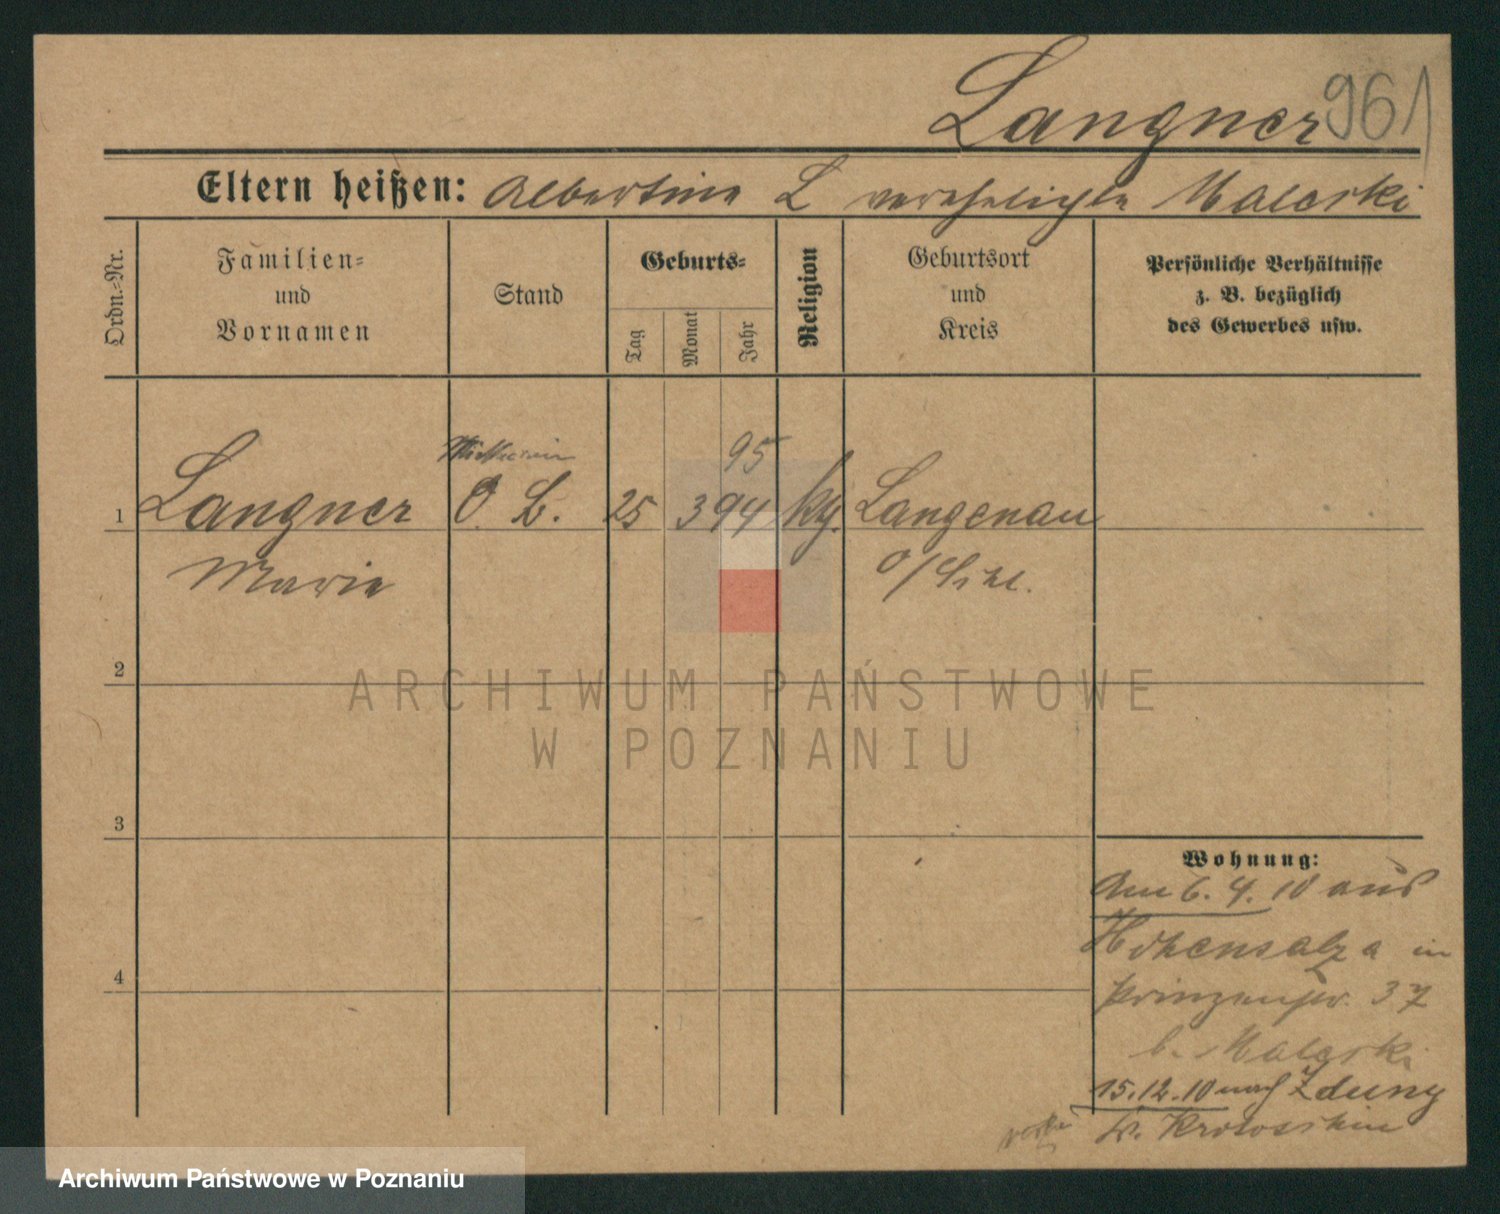 Langner 961
Eltern heißen: Albertine L verehelichte Malerski
Ordn.-Nr.
Familien-
und
Vornamen
Stand
Geburts-
Tag
Monat
Jahr
Religion
Geburtsort
und
Kreis
Persönliche Verhältnisse
z. B. bezüglich
des Gewerbes usw.
95
1 Langner O. L. 25 3 94 kg. Langenau
Marie O/Schl.
2
ARCHIWUM PAŃSTWOWE
W POZNANIU
3
Wohnung:
Am 6. 4. 10 aus
Hohensalza in
Prinzenstr. 37
b. Malerski
15.12.10 nach Zduny
Kr. Krotoschin
4
Archiwum Państwowe w Poznaniu